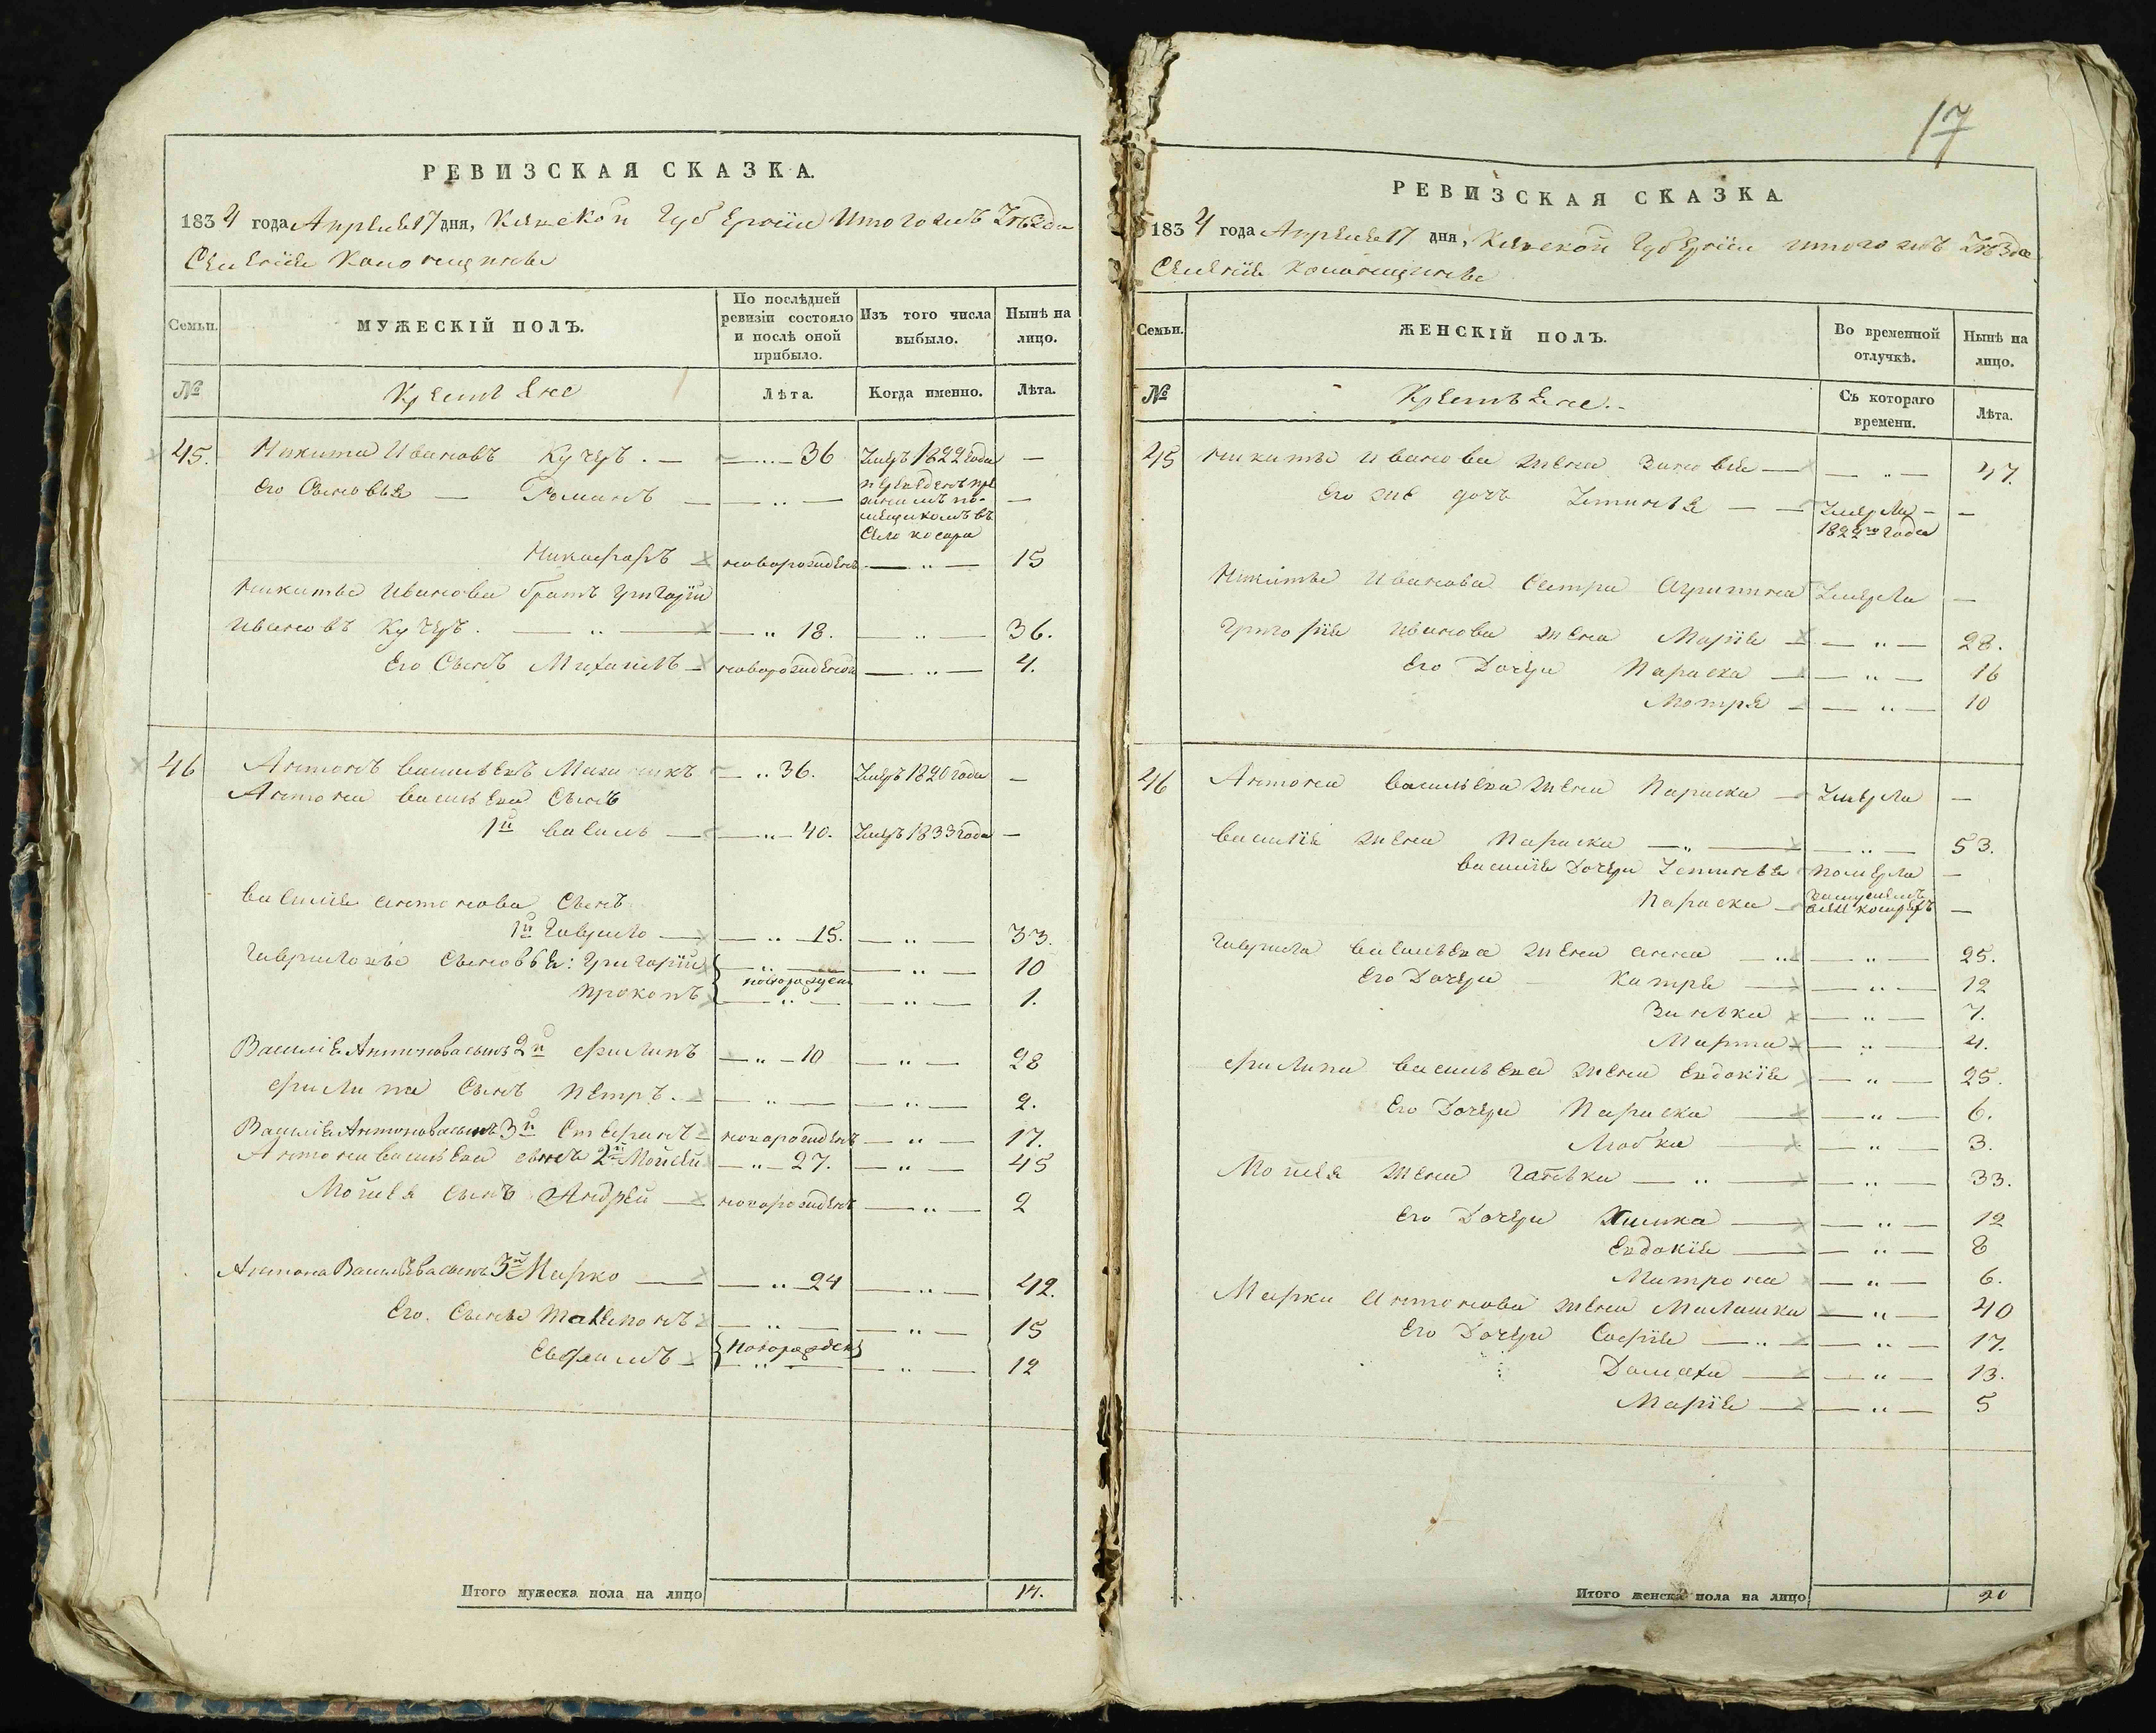 РЕВИЗСКАЯ СКАЗКА.
1834 года Апреля 17 дня, Киевской Губернии Итого имъ Уѣзда
Селенія
Семьи.
МУЖЕСКІЙ ПОЛЪ.
По послѣдней ревизіи состояло и послѣ оной прибыло.
Изъ того числа выбыло.
Нынѣ на лицо.
№
Крестьяне
Лѣта.
Когда именно.
Лѣта.
45. Никита Ивановъ Кучеръ. — 36 умеръ 1822 года —
Его Сыновья — Романъ —
переведенъ
помещикомъ въ
Село косари
Никифоръ новорожденъ 15
Никиты Иванова братъ Григорій
Ивановъ Кучеръ. 18. 36.
Его Сынъ Михаилъ новорожденъ 4.
46 Антонъ Васильевъ 36. умеръ 1820 года —
Антона Васильева Сынъ
1й Василь 40. умеръ 1833 года —
Василія Антонова Сынъ
1й Гаврило 15. 33.
Гавриловы Сыновья: Григорій 10
новорожденъ
Прокопъ 1.
Василія Антонова сынъ 2й Филипъ 10 28
Филипа Сынъ Петръ. 2.
Василія Антонова сынъ 3й Стефанъ новорожденъ 17.
Антона Васильева сынъ 2й Мойсей 27. 45
Мойсея сынъ Андрей новорожденъ 2
Антона Васильева сынъ 3й Марко 24 42.
Его Сыны 15
новорожден
12
Итого мужеска пола на лицо 14.
17
РЕВИЗСКАЯ СКАЗКА
1834 года Апреля 17 дня, Киевской Губерніи итого имъ Уѣзда
Селенія
Семьи.
ЖЕНСКІЙ ПОЛЪ.
Во временной отлучкѣ.
Нынѣ на лицо.
№
Крестьяне.
Съ котораго времени.
Лѣта.
45 Никиты Иванова жена Зиновія 47.
Его же дочь Устинья умерла —
1822го года
Никиты Иванова Сестра Агрипина умерла —
Григорія Иванова жена Марія 28.
Его Дочери Параска 16
Мотря 10
46 Антона Васильева жена Параска умерла —
Василія жена Параска 53.
Василія Дочери Устинья померла —
Параска замужемъ —
Гаврила Васильева жена Анна 25.
Его Дочери Катря 12
Зинька 7.
Марта 4.
Филипа Васильева жена Евдокія 25.
Его Дочери Параска 6.
Любка 3.
Мойсея жена Гапька 33.
Его Дочери 12
Евдокія 8
Митрона 6.
Марка Антонова жена Малашка 40
Его Дочери Софія 17.
Домаха 13.
Марія 5
Итого женска пола на лицо 20